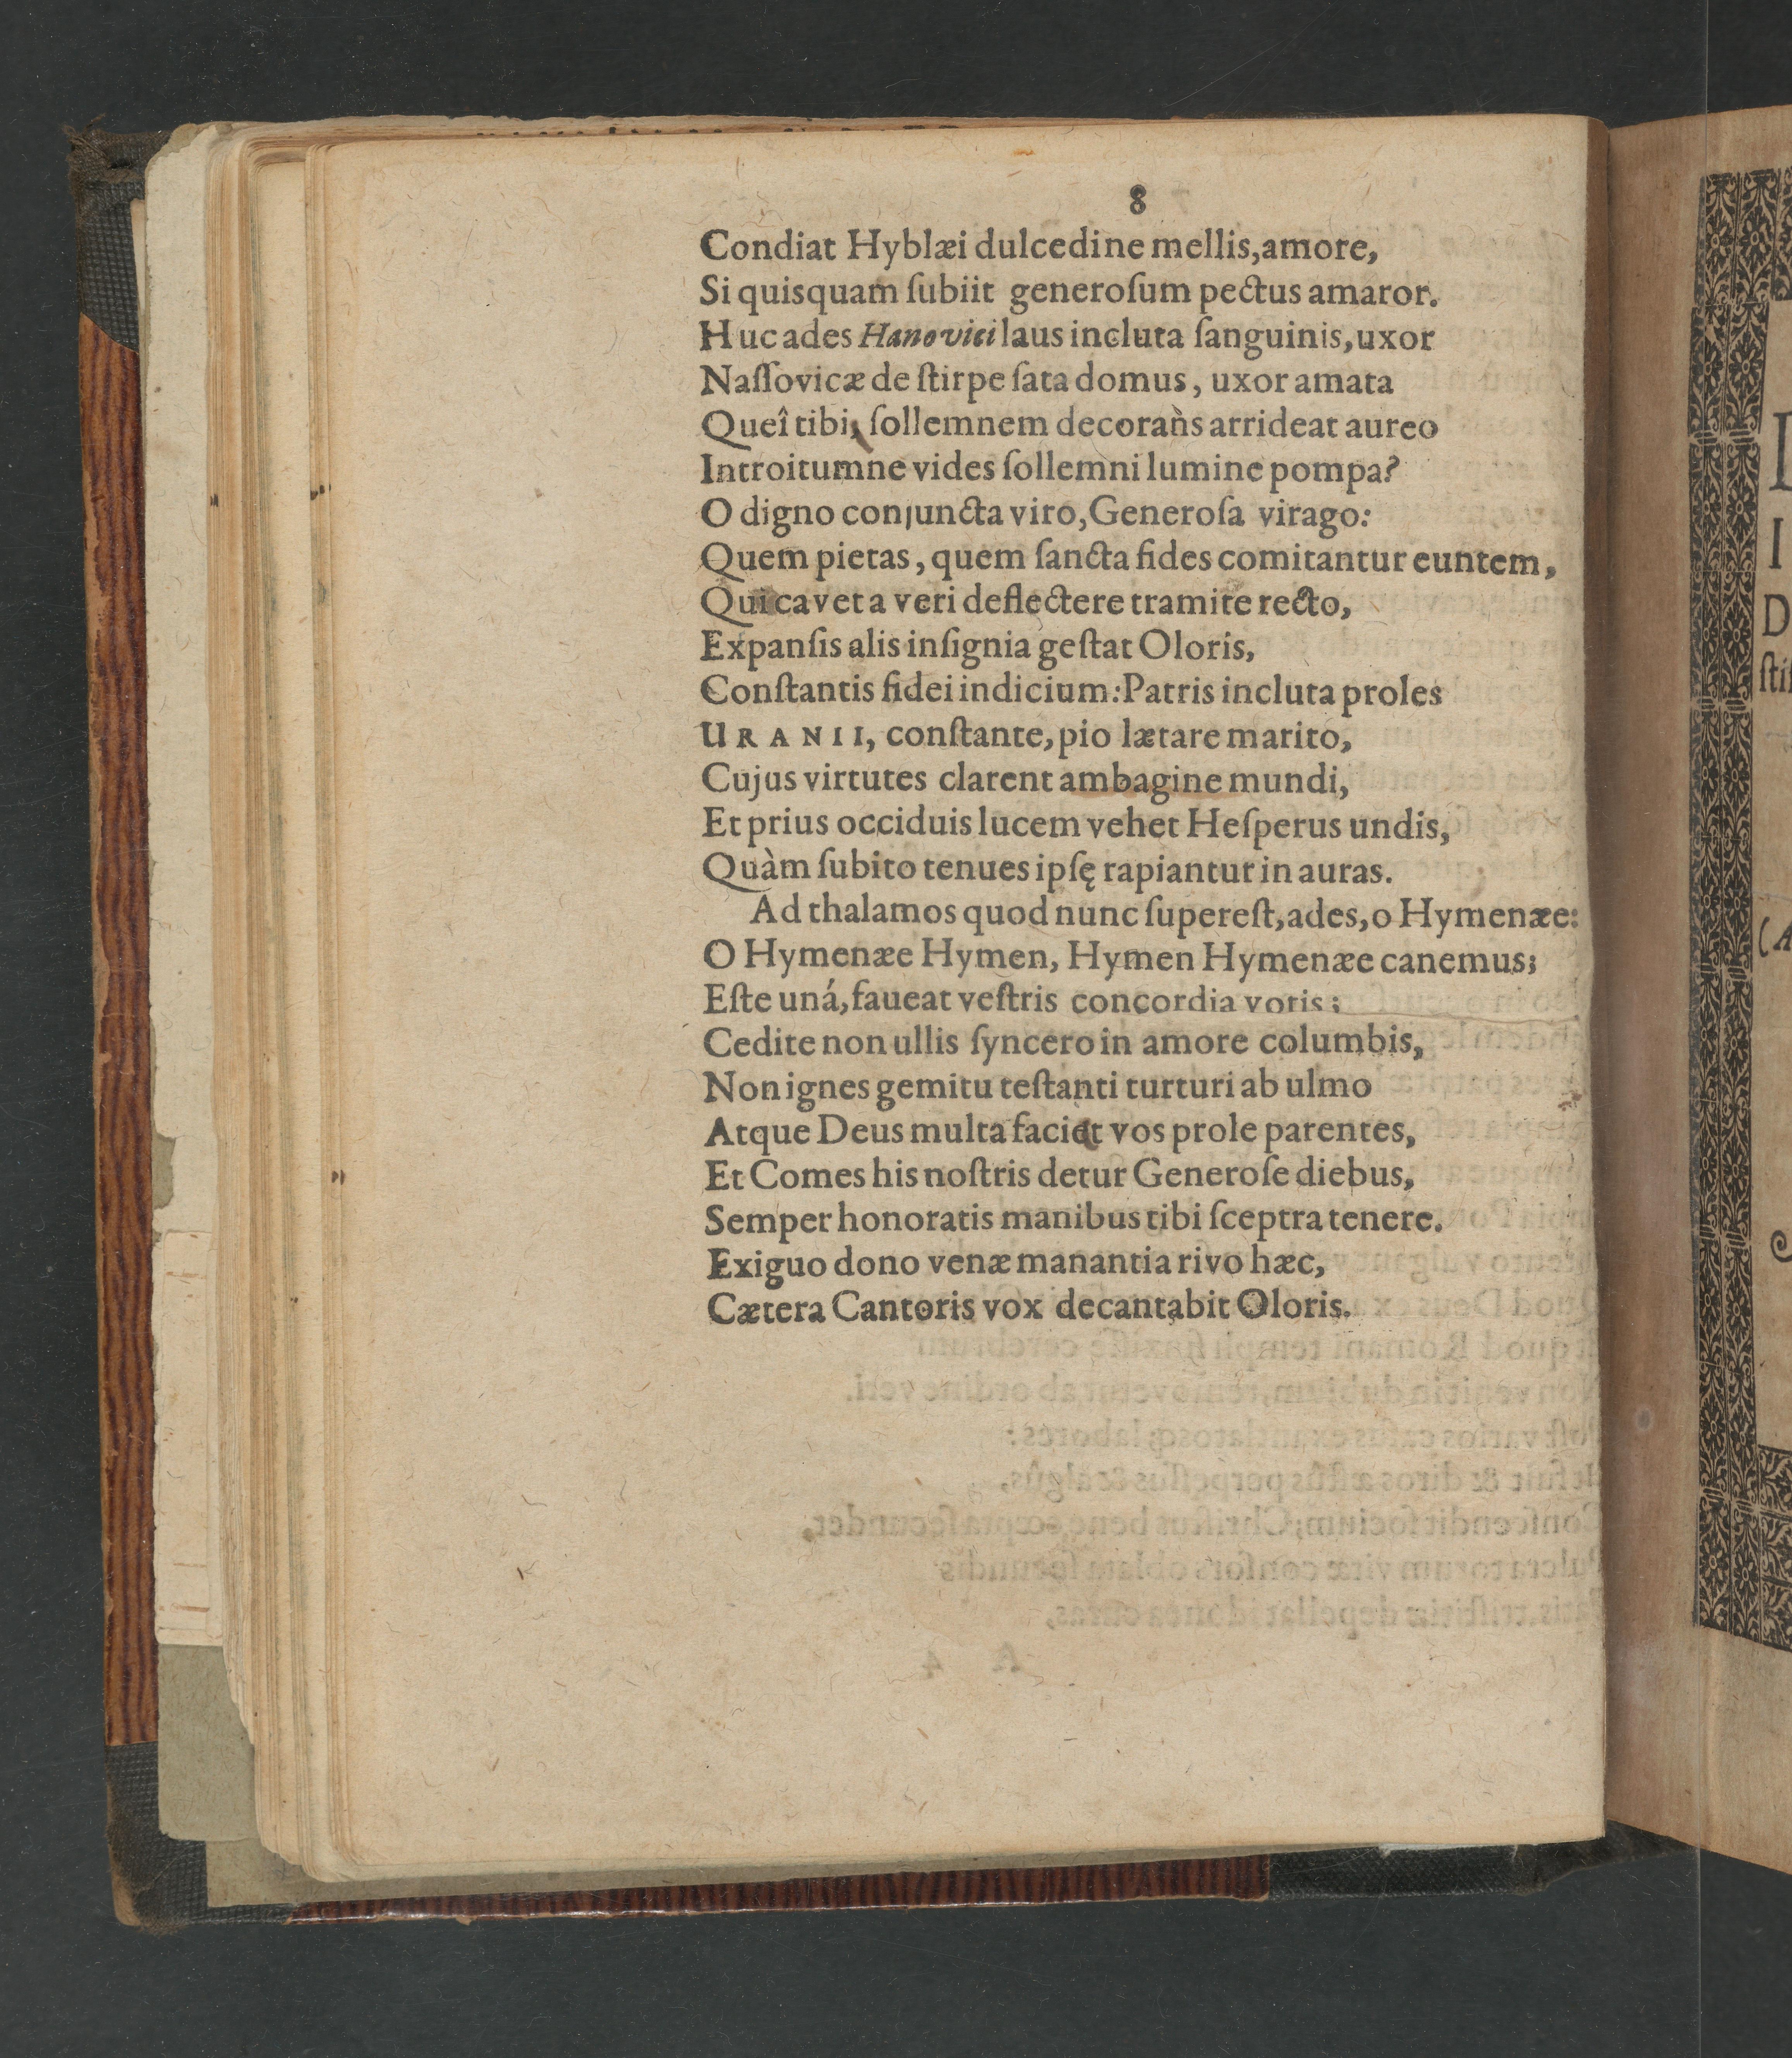 8
Condiat Hyblæi dulcedine mellis, amore,
Si quisquam ſubiit generoſum pectus amaror.
Huc ades Hanovici laus incluta ſanguinis, uxor
Naſſovicæ de ſtirpe ſata domus, uxor amata
Queî tibi, ſollemnem decorans arrideat aureo
Introitumne vides ſollemni lumine pompa?
O digno conjuncta viro, Generoſa virago:
Quem pietas, quem ſancta fides comitantur euntem,
Qui cavet a veri deflectere tramite recto,
Expanſis alis inſignia geſtat Oloris,
Conſtantis fidei indicium: Patris incluta proles
URANII, conſtante, pio lætare marito,
Cujus virtutes clarent ambagine mundi,
Et prius occiduis lucem vehet Heſperus undis,
Quàm ſubito tenues ipſę rapiantur in auras.
Ad thalamos quod nunc ſupereſt, ades, o Hymenæe:
O Hymenæe Hymen, Hymen Hymenæe canemus;
Eſte uná, faueat veſtris concordia votis;
Cedite non ullis ſyncero in amore columbis,
Non ignes gemitu teſtanti turturi ab ulmo
Atque Deus multa faciet vos prole parentes,
Et Comes his noſtris detur Generoſe diebus,
Semper honoratis manibus tibi ſceptra tenere.
Exiguo dono venæ manantia rivo hæc,
Cætera Cantoris vox decantabit Oloris.
I
I
D
ſtiſ
(A